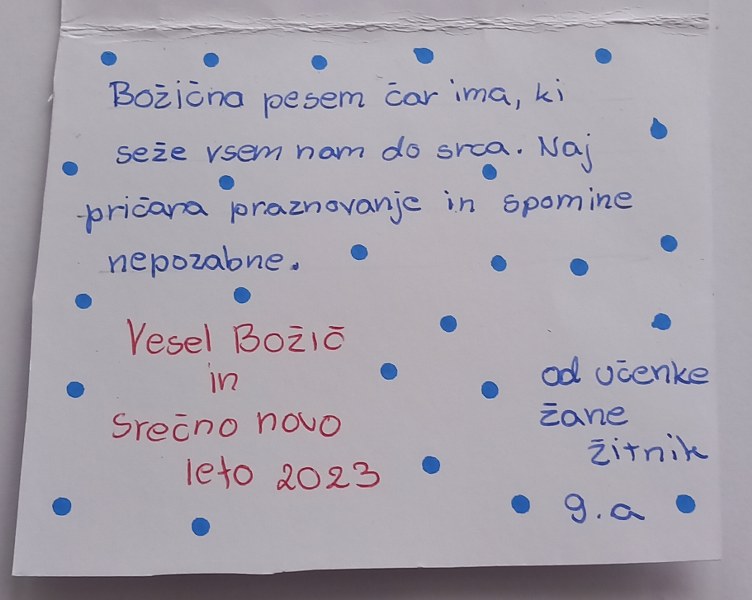 Božična pesem čar ima, ki
seže vsem nam do srca. Naj
pričara praznovanje in spomine
nepozabne.
Vesel Božič
in
srečno novo
leto 2023
od učenke
žane
žitnik
9.a